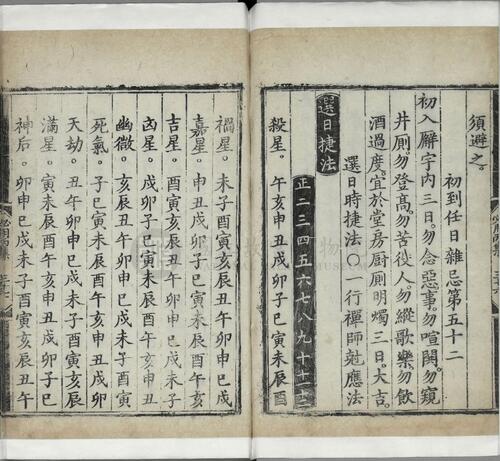 須避之。
初到任日雜忌第五十二
初入廨宇内三日。勿念惡事。勿喧閙。勿窺
井厠。勿登高。勿苦役人。勿縱歌樂。勿飲
酒過度。宜於堂房厨厠明燭三日。大吉。
選日時捷法〇一行禪師尅應法
選日捷法
正二三四五六七八九十十一十二
殺星。午亥申丑戌卯子巳寅未辰酉
禍星。未子酉寅亥辰丑午卯申巳戌
嘉星。申丑戌卯子巳寅未辰酉午亥
吉星。酉寅亥辰丑午卯申巳戌未子
凶星。戌卯子巳寅未辰酉午亥申丑
幽微。亥辰丑午卯申巳戌未子酉寅
死氣。子巳寅未辰酉午亥申丑戌卯
天劫。丑午卯申巳戌未子酉寅亥辰
滿星。寅未辰酉午亥申丑戌卯子巳
神后。卯申巳戌未子酉寅亥辰丑午